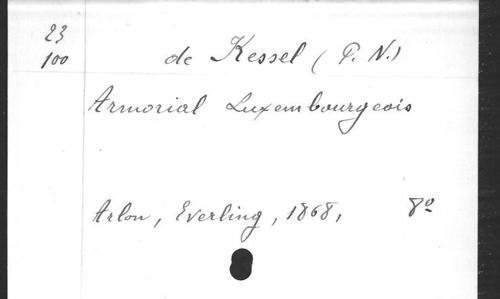 23
100
de Kessel (P. N.)
Armorial Luxembourgeois
Arlon, Everling, 1868, 8º